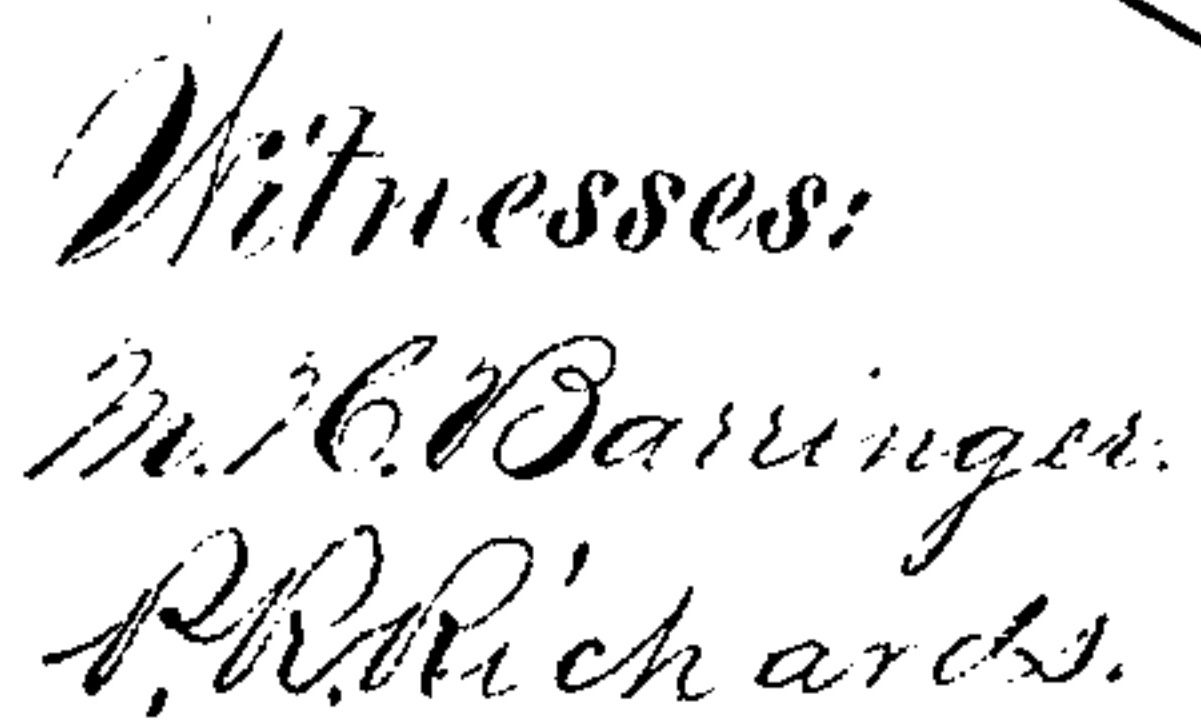 Witnesses:
M. H. Barringer.
P. R. Richards.